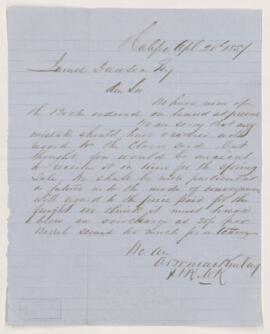 Halifax Apl 20th 1857
James Dawson Esq
Dear Sir
We have none of
the Books ordered on hand at present
We are sorry that any
mistake should have occurred with
regard to the Clover seed but
thought you would be anxious
to receive it in time for the Spring
Sale, We shall be more particular
in future as to the mode of conveyance
with regard to the price paid for the
freight we think it must have
been an overcharge as per
Barrel seems too much for a
We Are